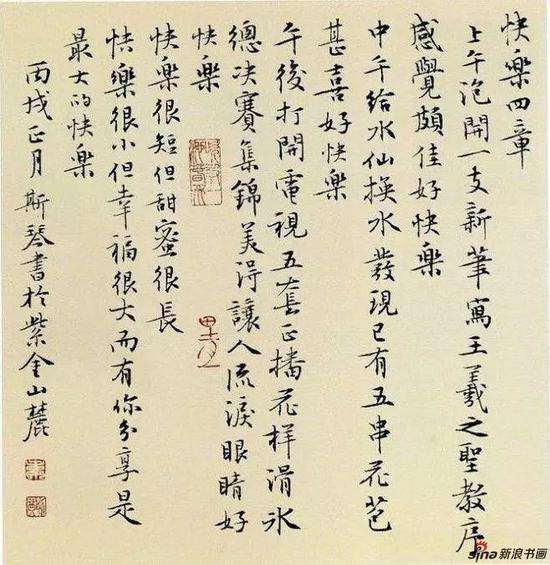 快樂四章
上午泡開一支新筆寫王羲之聖教序
感覺頗佳好快樂
中午給水仙換水發現已有五串花苞
甚喜好快樂
午後打開電視五套正播花样滑冰
總决賽集錦美得讓人流淚眼睛好
快樂
快樂很短但甜蜜很長
快樂很小但幸福很大而有你分享是
最大的快樂
丙戌正月斯琴書於紫金山麓
sina新浪书画